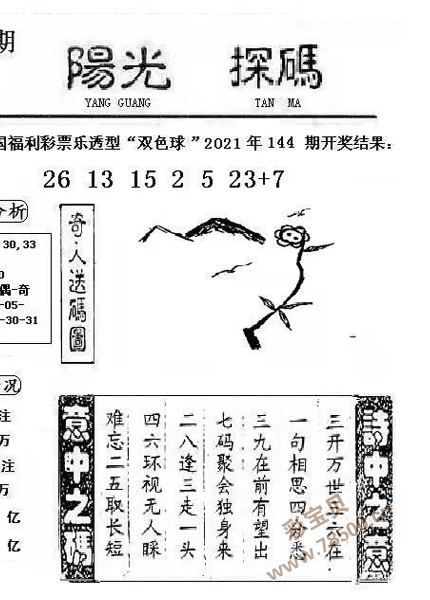 期
陽光 探碼
YANG GUANG TAN MA
国福利彩票乐透型“双色球”2021年144 期开奖结果:
26 13 15 2 5 23+7
分析
30,33
0
偶-奇
-05-
-30-31
奇·人送碼圖
况
注
万
注
万
亿
亿
詩中有意
三开万世五六在
一句相思四分悉
三九在前有望出
七码聚会独身来
二八逢三走一头
四六环视无人睬
难忘二五取长短
意中之碼
彩宝贝